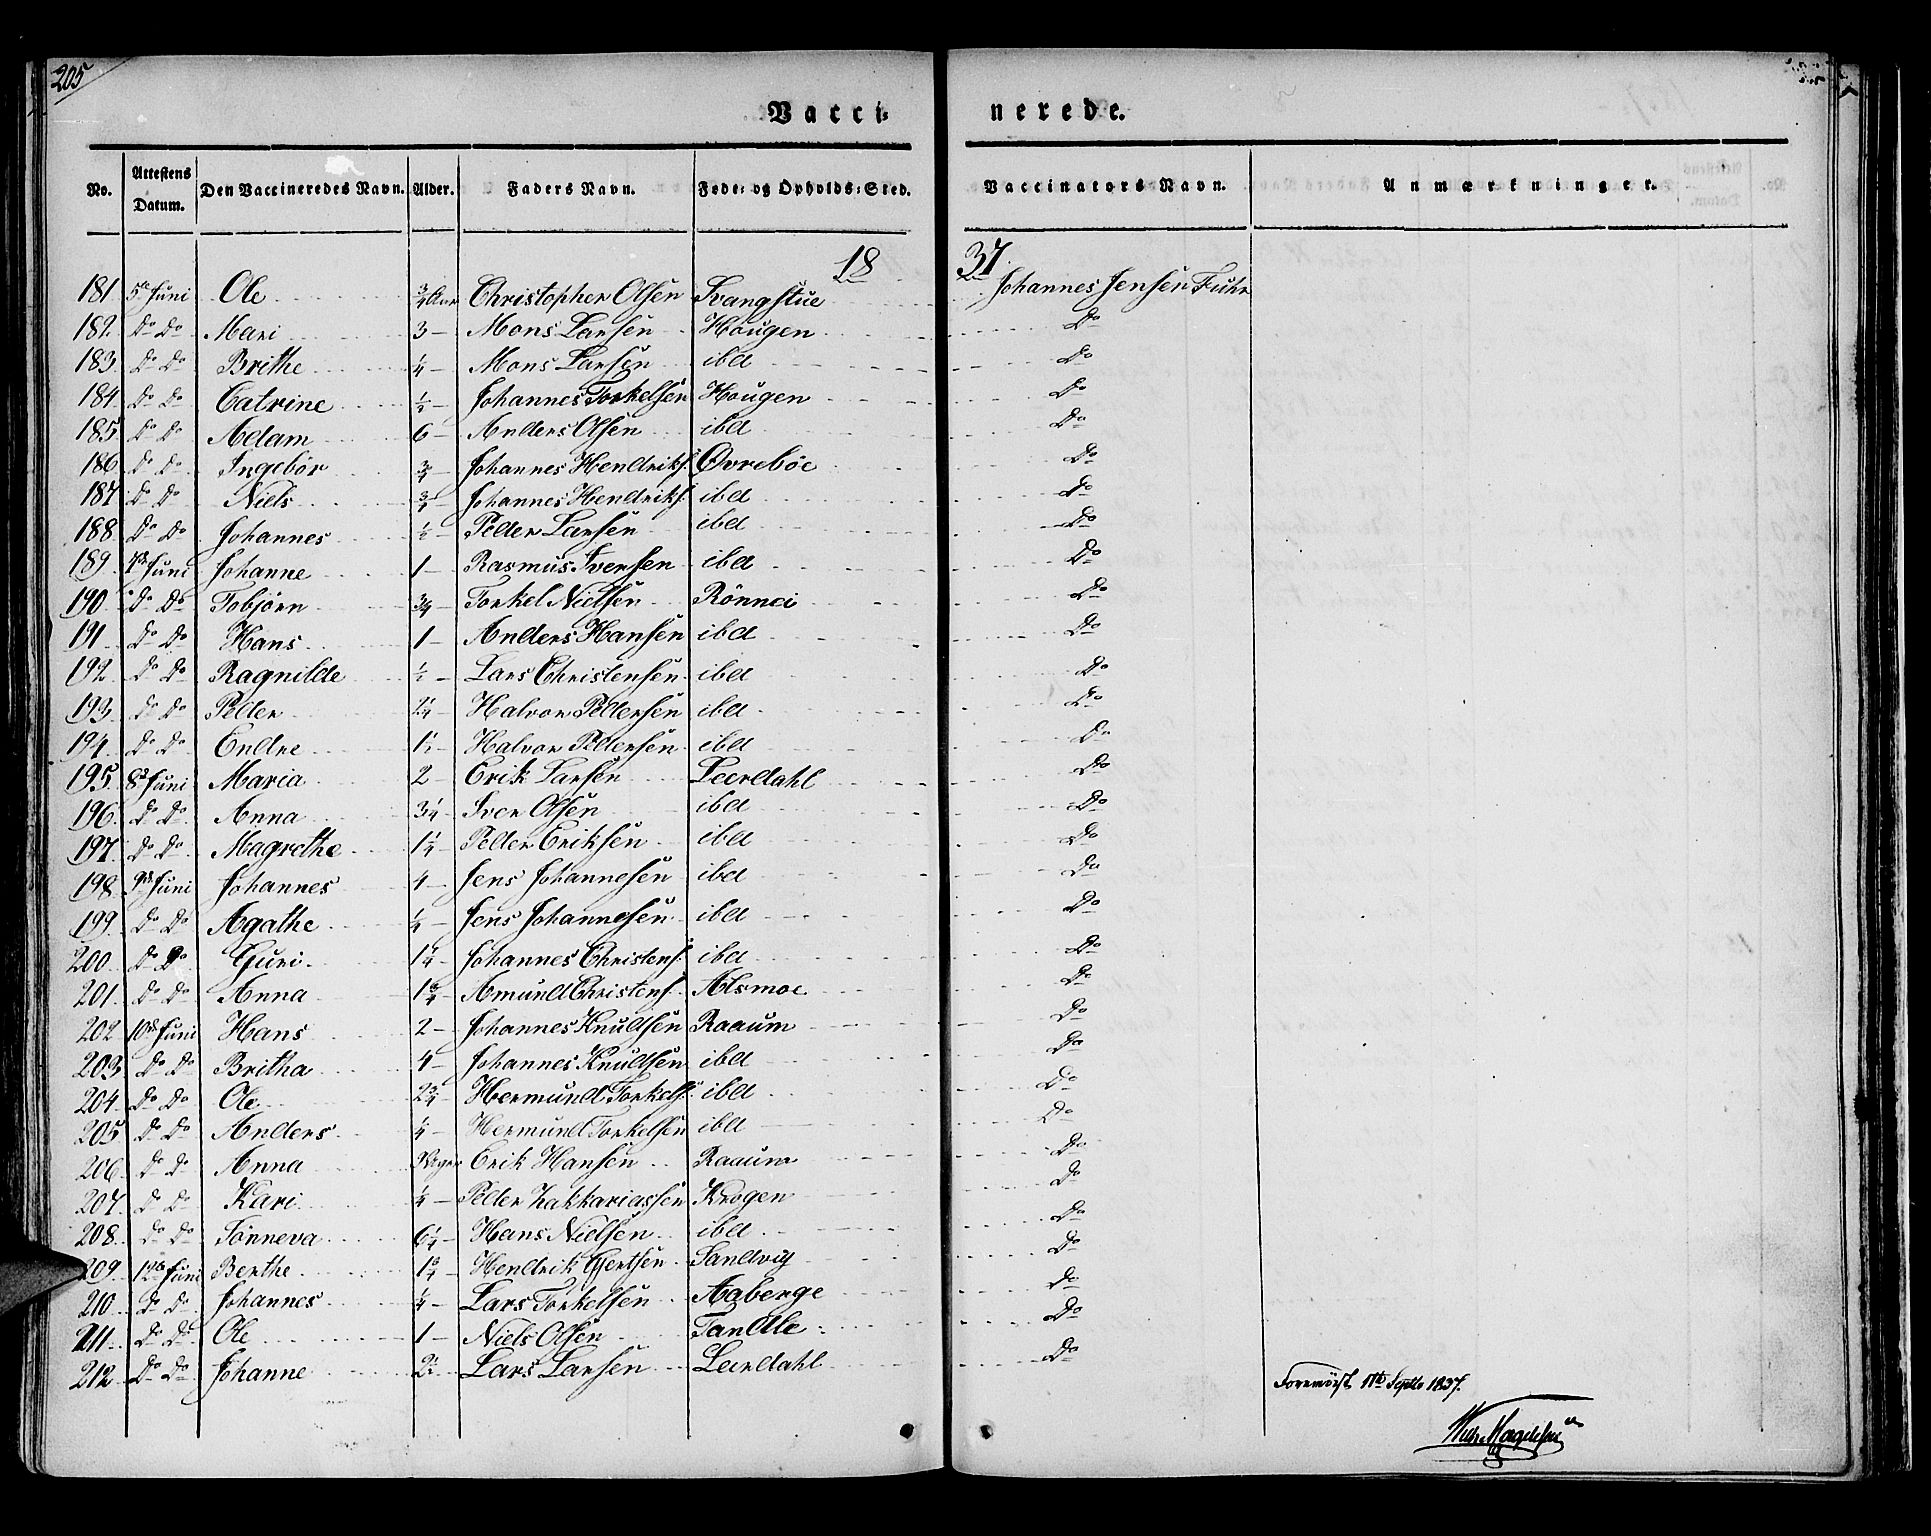 205
Vacci= nerede.
No. Attestens Datum. Den Vaccineredes Navn. Alder. Faders Navn. Føde= og Opholds=Sted. Vaccinators Navn. Anmærkninger.
18 37.
181 5te Juni Ole ¾ Aar Christopher Olsen Svangstue Johannes Jensen Fuhr
182. Do Do Mari 3 — Mons Larsen Hougen Do
183. Do Do Brithe ¼ — Mons Larsen ibd Do
184. Do Do Catrine ½ — Johannes Torkelsen Hougen Do
185. Do Do Adam 6 — Anders Olsen ibd Do
186. Do Do Ingebór ¾ — Johannes Hendriks. Øvreböe Do
187 Do Do Niels ¾ — Johannes Hendriks. ibd Do
188. Do Do Johannes ½ — Peder Larsen ibd Do
189. 7de Juni Johanne 1 — Rasmus Iversen ibd Do
190. Do Do Tobjörn ¾ — Torkel Nielsen Rönnei Do
191. Do Do Hans 1 — Anders Hansen ibd Do
192. Do Do Ragnilde ½ — Lars Christensen ibd Do
193. Do Do Peder 2¼ — Halvor Pedersen ibd Do
194. Do Do Endre 1½ — Halvor Pedersen ibd Do
195. 8de Juni Maria 2 — Erik Larsen Leerdahl Do
196. Do Do Anna 3¼ — Iver Olsen ibd Do
197. Do Do Magrethe 1¼ — Peder Eriksen ibd Do
198. 9de Juni Johannes 4 — Jens Johannesen ibd Do
199. Do Do Agathe ½ — Jens Johannesen ibd Do
200. Do Do Guri 1¼ Johannes Christens. ibd Do
201. Do Do Anna 1¾ — Amund Christens. Alsmoe Do
202 10de Juni Hans 2 — Johannes Knudsen Raaum Do
203 Do Do Britha 4 — Johannes Knudsen ibd Do
204. Do Do Ole 2¾ — Hermund Torkels. ibd Do
205 Do Do Anders ¼ — Hermund Torkelsen ibd Do
206. Do Do Anna Erik Hansen Raaum Do
207. Do Do Kari ¼ — Peder Zakkariassen Krogen Do
208. Do Do Tönneva 6¼ — Hans Nielsen ibd Do
209. 12te Juni Berthe 1¾ — Hendrik Gertsen Sandvig Do
210. Do Do Johannes ¼ — Lars Torkelsen Aaberge Do
211. Do Do Ole 1 — Niels Olsen Tandle Do
212 Do Do Johanne 2½ — Lars Larsen Leerdahl Do
11te Septbr 1837.